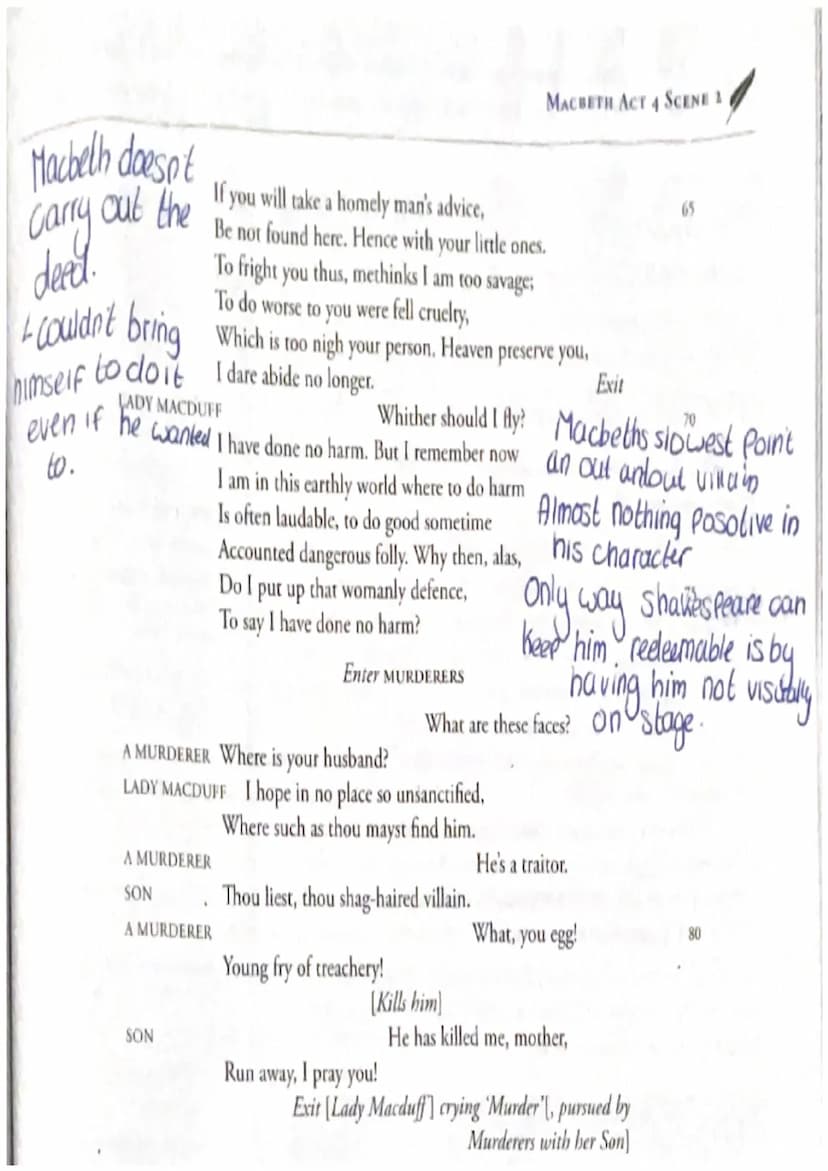 MACBETH ACT 4 SCENE 2
Macbeth doesnt
carry out the
deed.
couldnt bring
himself to do it
even if he wanted
to.
If you will take a homely man's advice, 65
Be not found here. Hence with your little ones.
To fright you thus, methinks I am too savage;
To do worse to you were fell cruelty,
Which is too nigh your person. Heaven preserve you,
I dare abide no longer. Exit
LADY MACDUFF Whither should I fly? 70
I have done no harm. But I remember now
I am in this earthly world where to do harm
Is often laudable, to do good sometime
Accounted dangerous folly. Why then, alas,
Do I put up that womanly defence,
To say I have done no harm?
Macbeths slowest point
an out anlout villain
Almost nothing posotive in
his character
Only way Shakespeare can
keep him redeemable is by
having him not visually
on stage.
Enter MURDERERS
What are these faces?
A MURDERER Where is your husband?
LADY MACDUFF I hope in no place so unsanctified,
Where such as thou mayst find him.
A MURDERER He's a traitor.
SON Thou liest, thou shag-haired villain.
A MURDERER What, you egg! 80
Young fry of treachery!
[Kills him]
SON He has killed me, mother,
Run away, I pray you!
Exit [Lady Macduff] crying 'Murder'[, pursued by
Murderers with her Son]